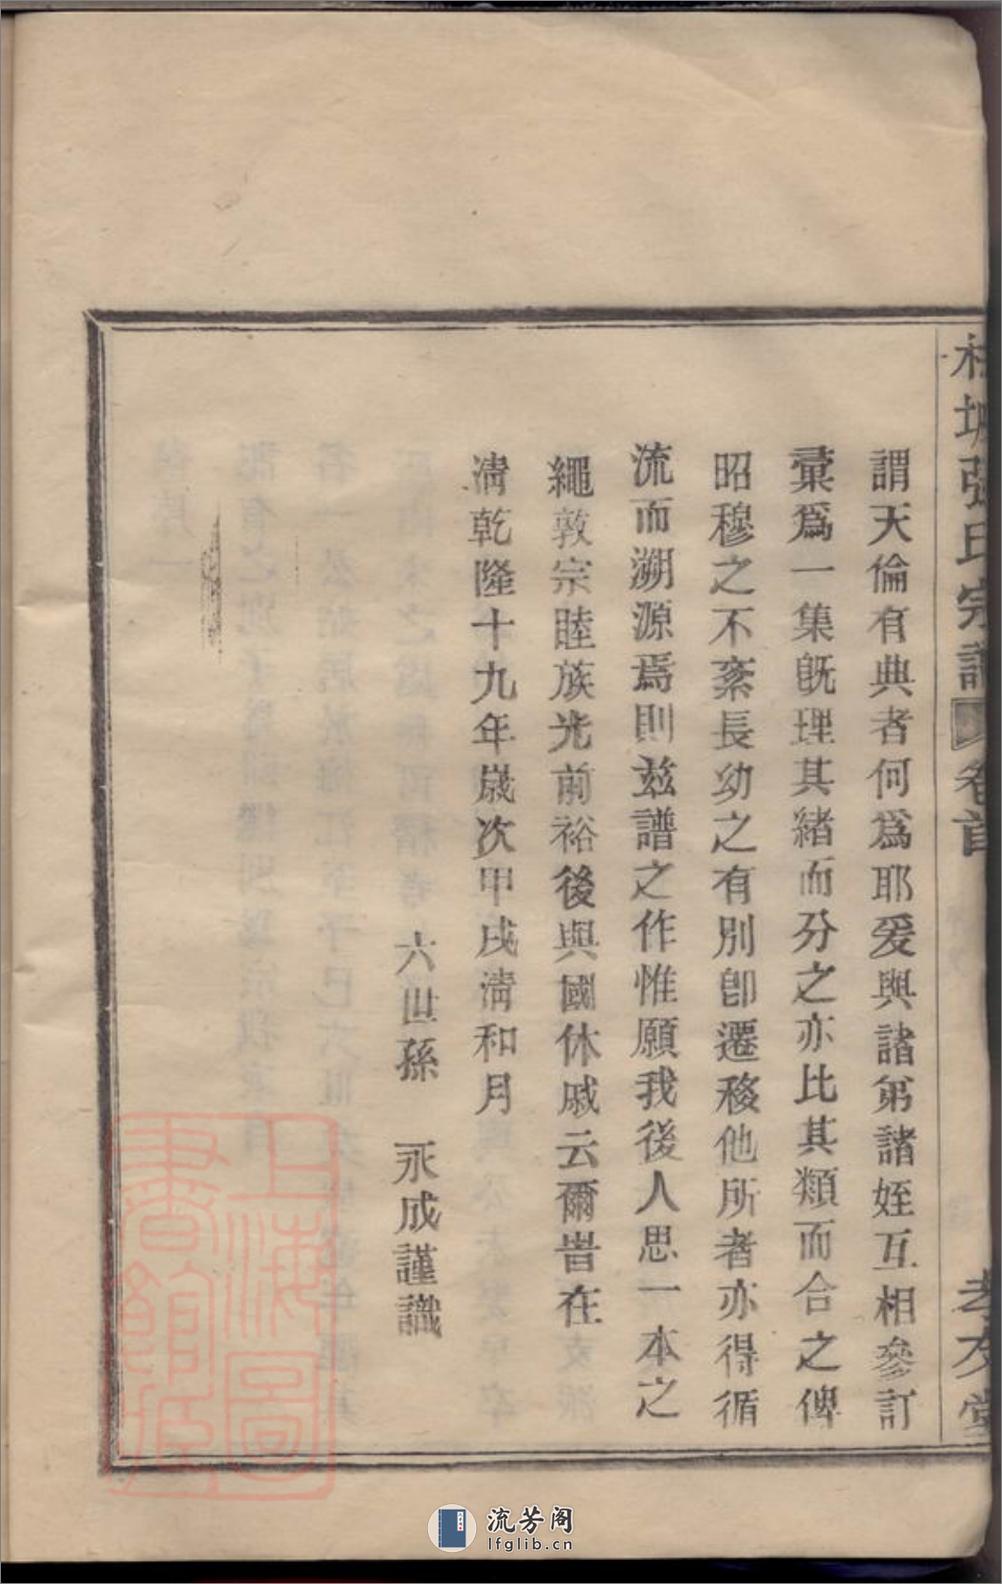 城張氏宗譜 卷首 孝友堂
謂天倫有典者何爲耶爰與諸弟諸姪互相參訂
彚爲一集旣理其緒而分之亦比其類而合之俾
昭穆之不紊長幼之有別卽遷移他所者亦得循
流而溯源焉則玆譜之作惟願我後人思一本之
繩敦宗睦族光前裕後與國休戚云爾旹在
淸乾隆十九年歲次甲戌淸和月
六世孫 永成謹識
上海圖
書館藏
流芳阁
lfglib.cn